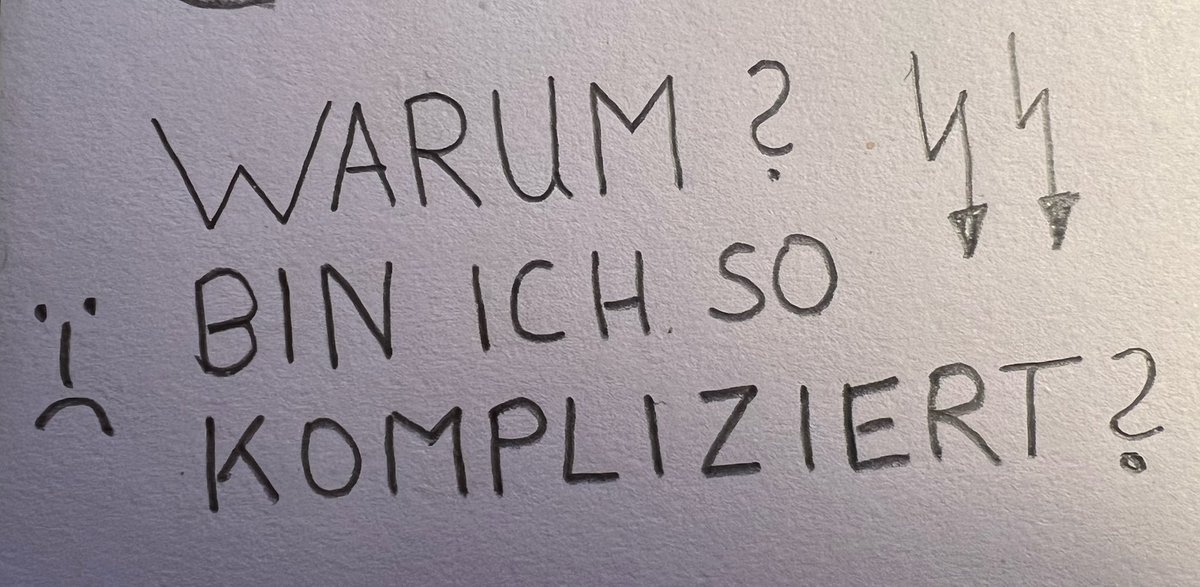 WARUM?
BIN ICH SO
KOMPLIZIERT?